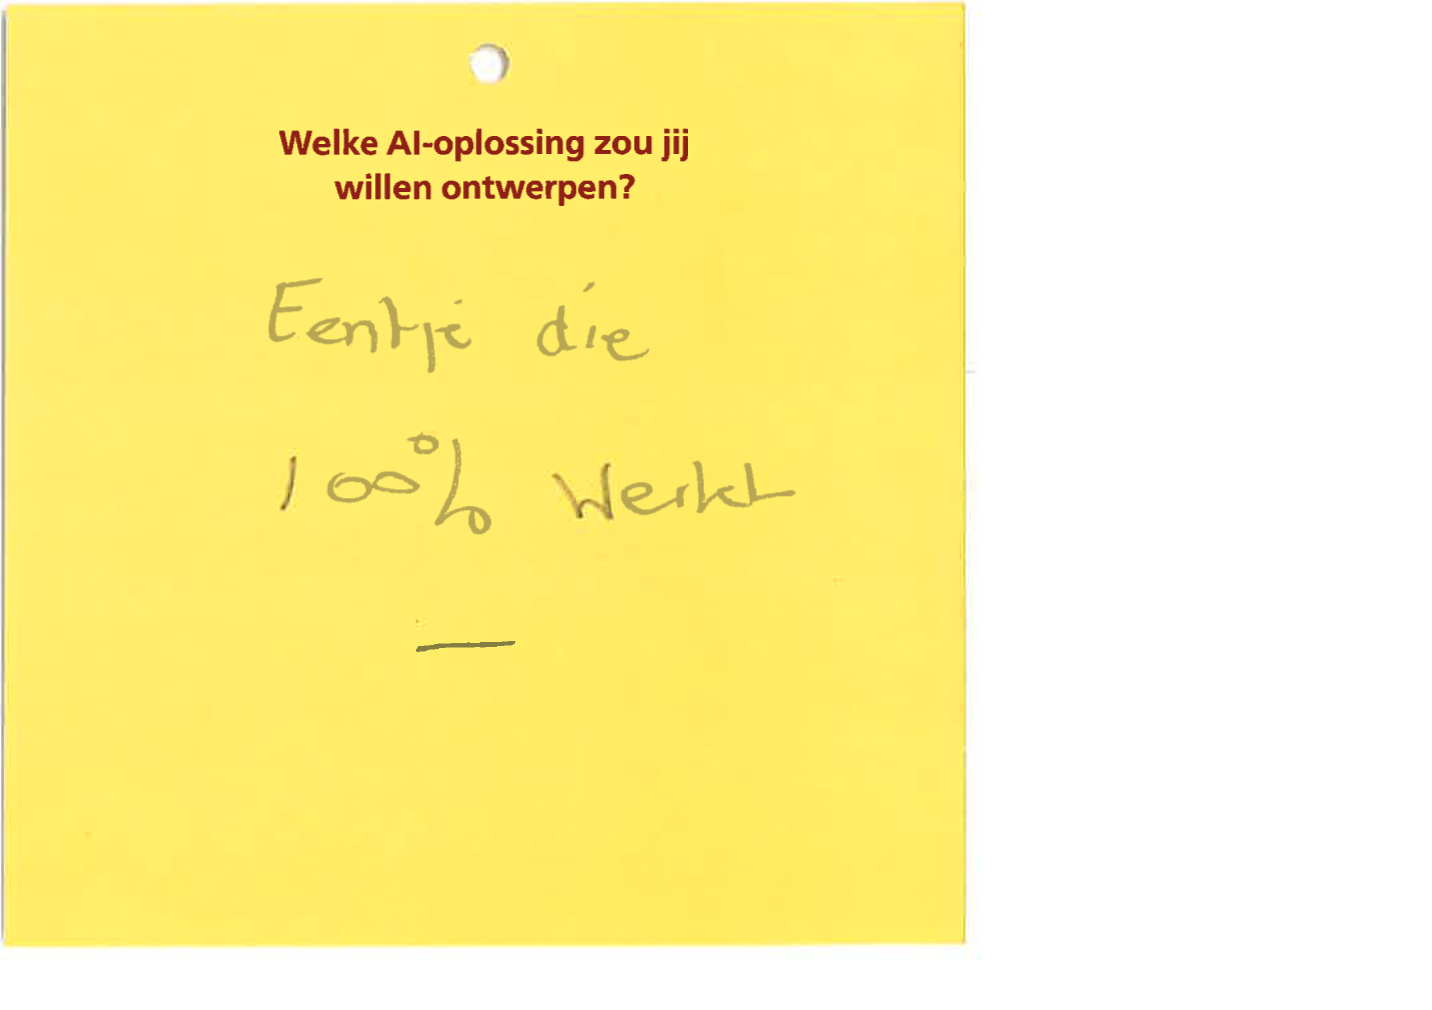 Welke AI-oplossing zou jij
willen ontwerpen?
Eentje die
100% werkt